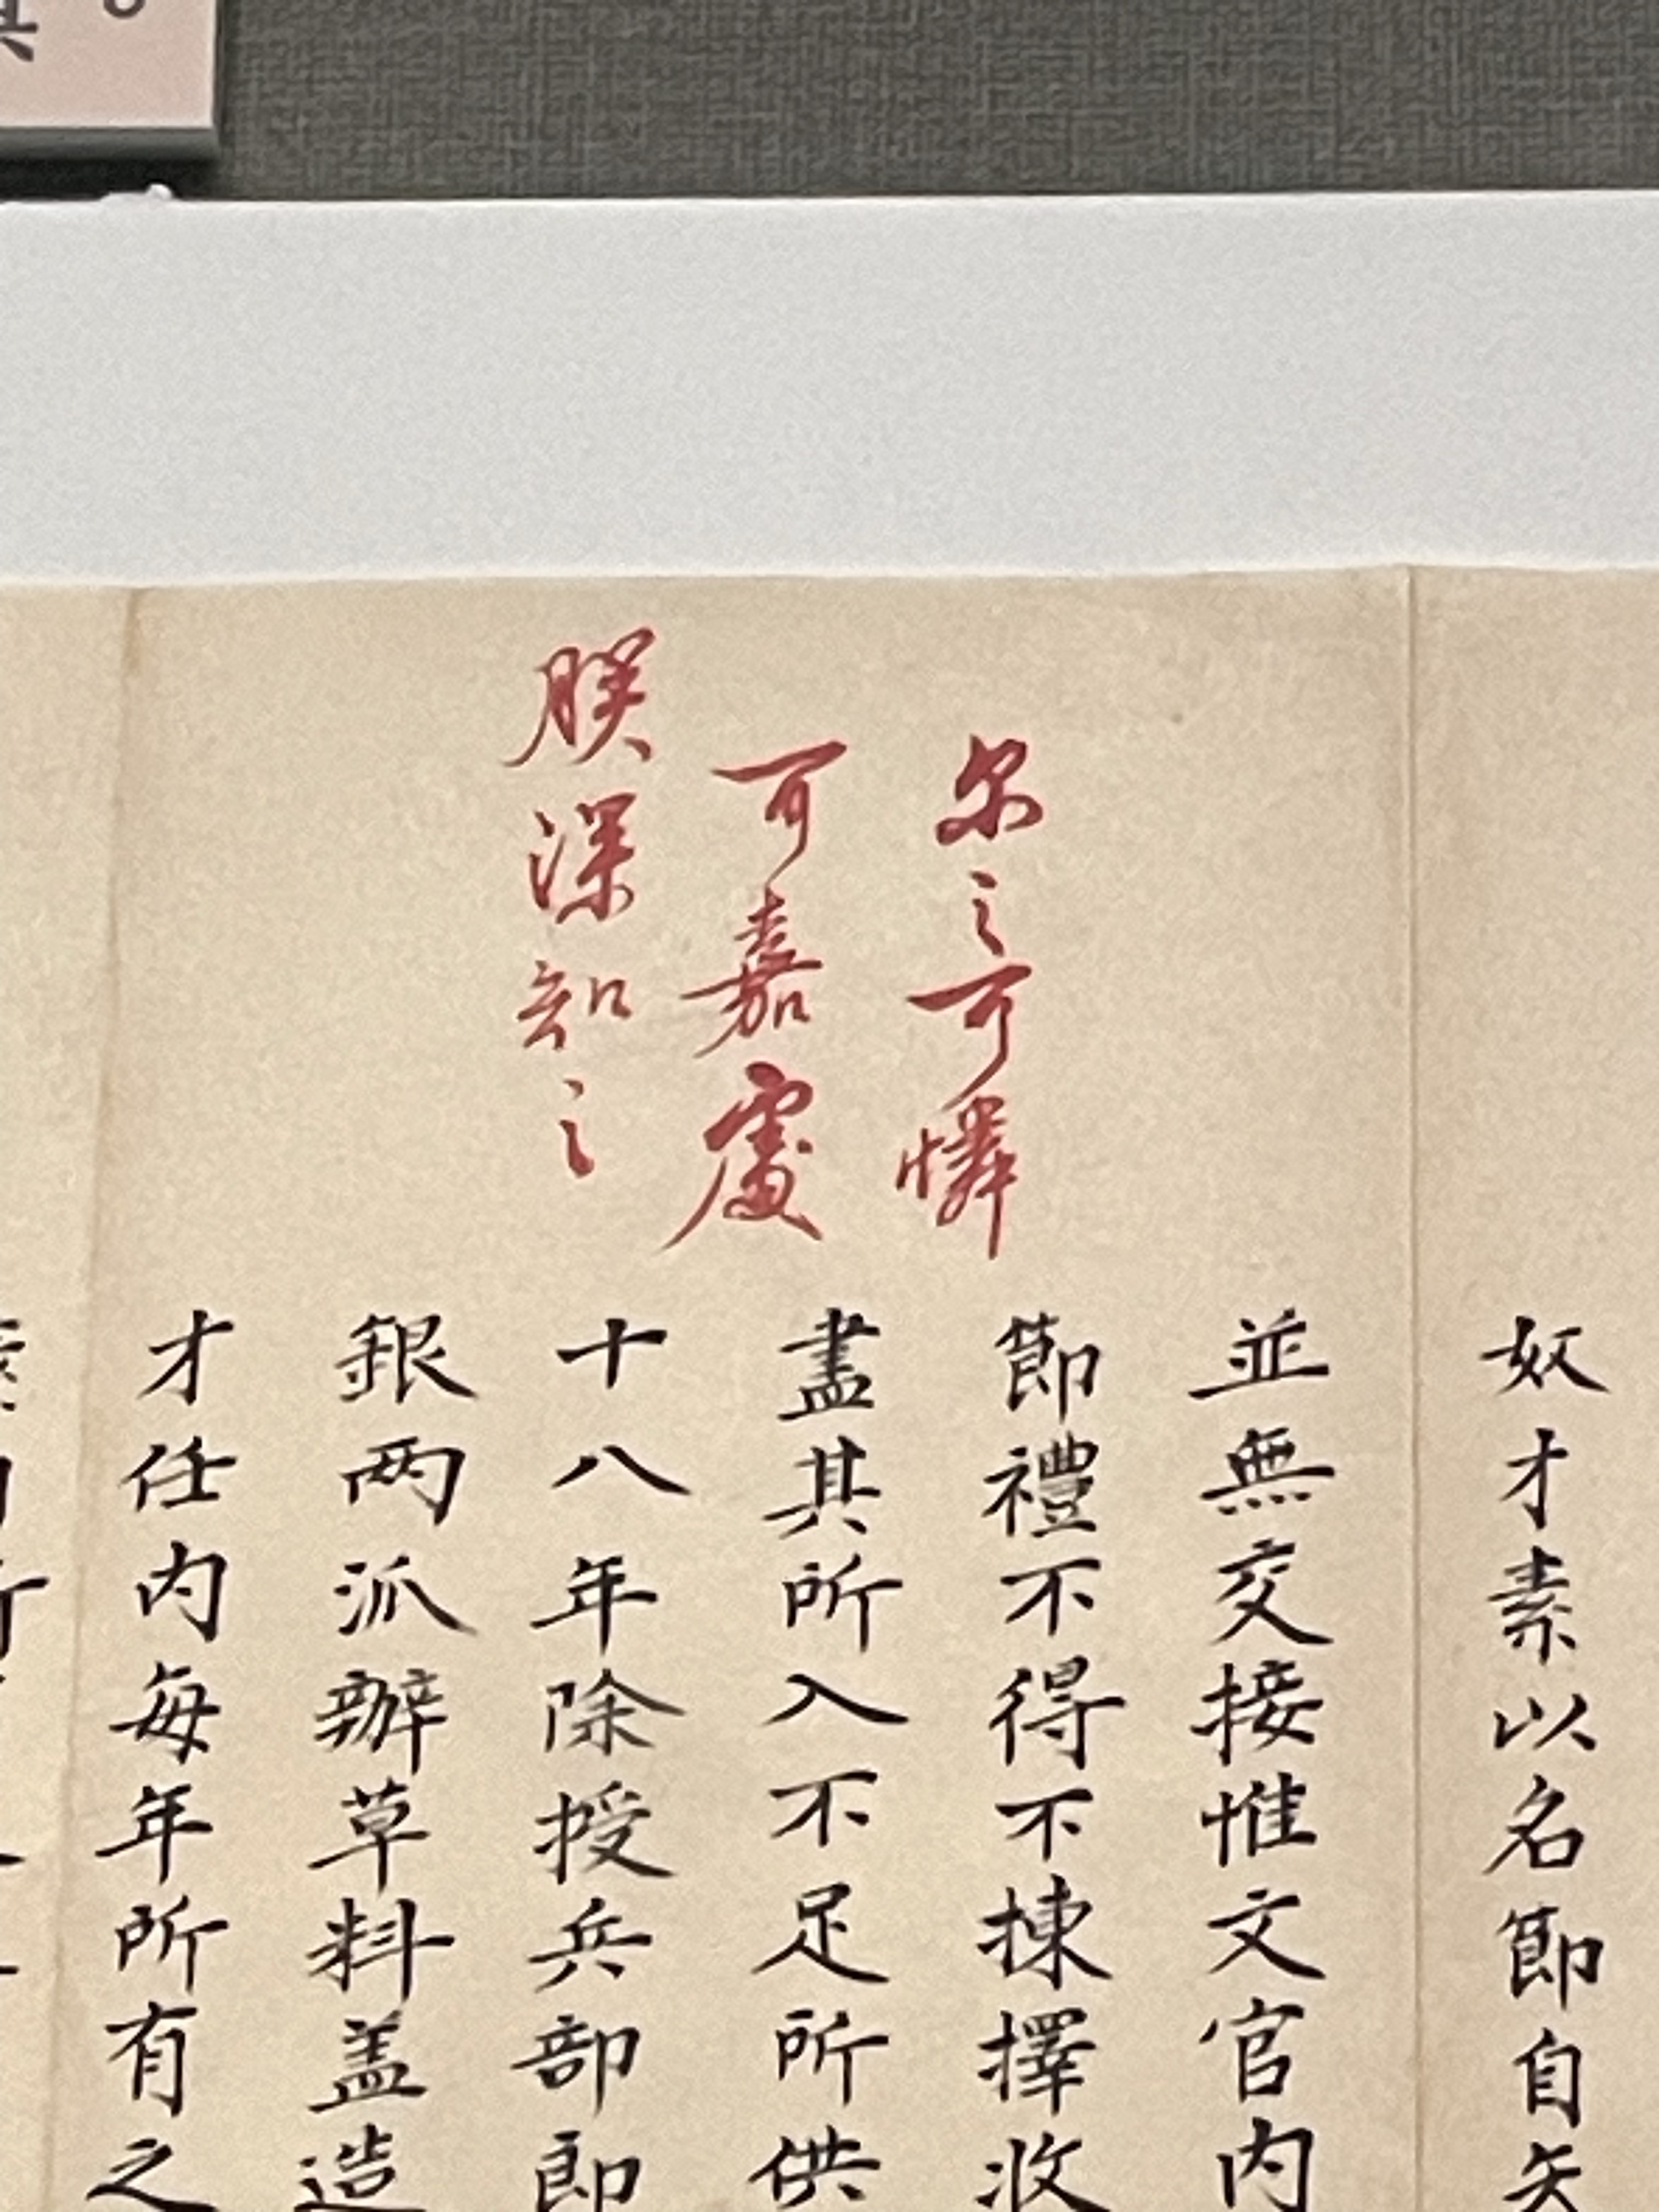 尔之可憐
可嘉處
朕深知之
奴才素以名節自矢
並無交接惟文官内
節禮不得不揀擇收
盡其所入不足所供
十八年除授兵部郎
銀两派辦草料盖造
才任内每年所有之